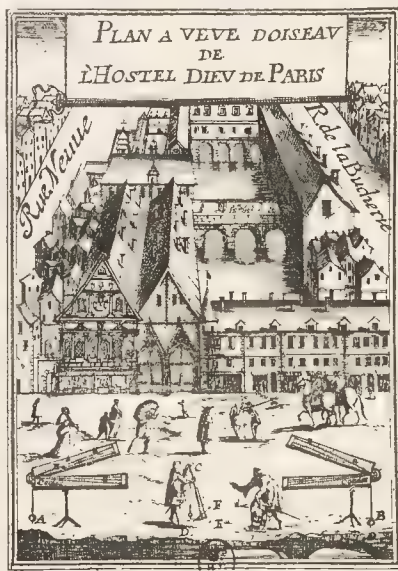 PLAN A VEVE DOISEAV
DE
LHOSTEL DIEV DE PARIS
Rue Neuue
R. de la Bucherie
A
C
D
F
E
B